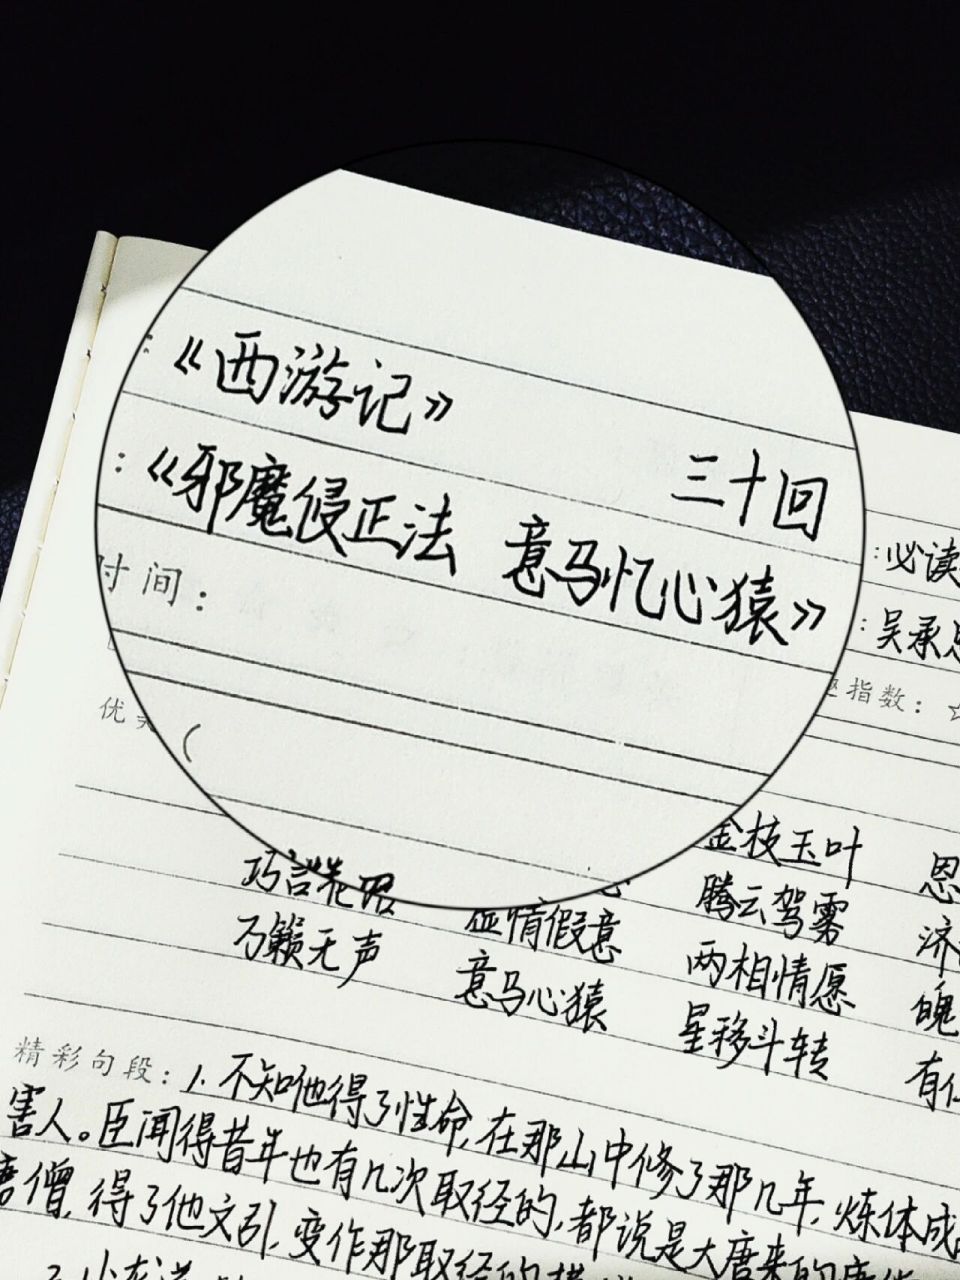 ：《西游记》
三十回
：《邪魔侵正法 意马忆心猿》
时间：
：必读
：吴承
指数：☆
优
（
金枝玉叶 恩
巧言花 腾云駕雾 济
虚情假意
万籁无声 两相情愿 魄
意马心猿
星移斗转 有
精彩句段：1. 不知他得了性命，在那山中修了那几年，炼体成
害人。臣闻得昔年也有几次取经的，都说是大唐来的唐
唐僧，得了他文引，变作那取经的